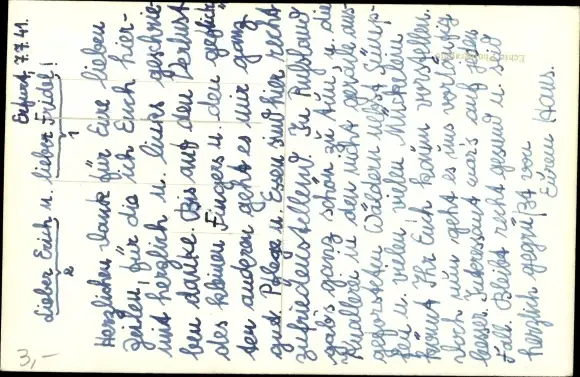 Erfurt, 7.7.41.
Lieber Erich u. lieber Fridel!
2 1
Herzlichen Dank für Eure lieben
Zeilen, für die ich Euch hier-
mit herzlich u. links geschrie-
ben danke. Bis auf den Verlust
des kleinen Fingers u. den geflick-
ten anderen geht es mir ganz
gut. Pflege u. Essen sind hier recht
zufriedenstellend. In Rußland
gab's ganz schön zu tun u. die
Knallerei in den nicht gerade aus-
geforsteten Wäldern nebst Sümp-
fen u. vielen vielen Mückelein
könnt Ihr Euch kaum vorstellen.
Doch nun geht es uns vorläufig
besser. Interessant war's auf jeden
Fall. Bleibt recht gesund u. seid
herzlich gegrüßt von
Eurem Hans.
3,-
Echte Photographie